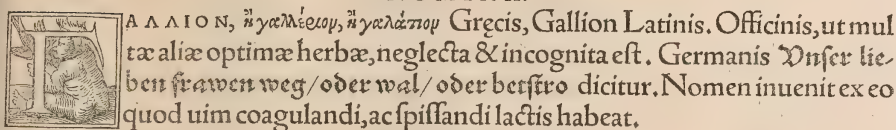 ΓΑΛΛΙΟΝ, ἢ γαλλέριον, ἢ γαλάτιον Gręcis, Gallion Latinis. Officinis, ut mul
tæ aliæ optimæ herbæ, neglecta & incognita eſt. Germanis Vnſer lie-
ben frawen weg/oder wal/oder betſtro dicitur. Nomen inuenit ex eo
quod uim coagulandi, ac ſpiſſandi lactis habeat.